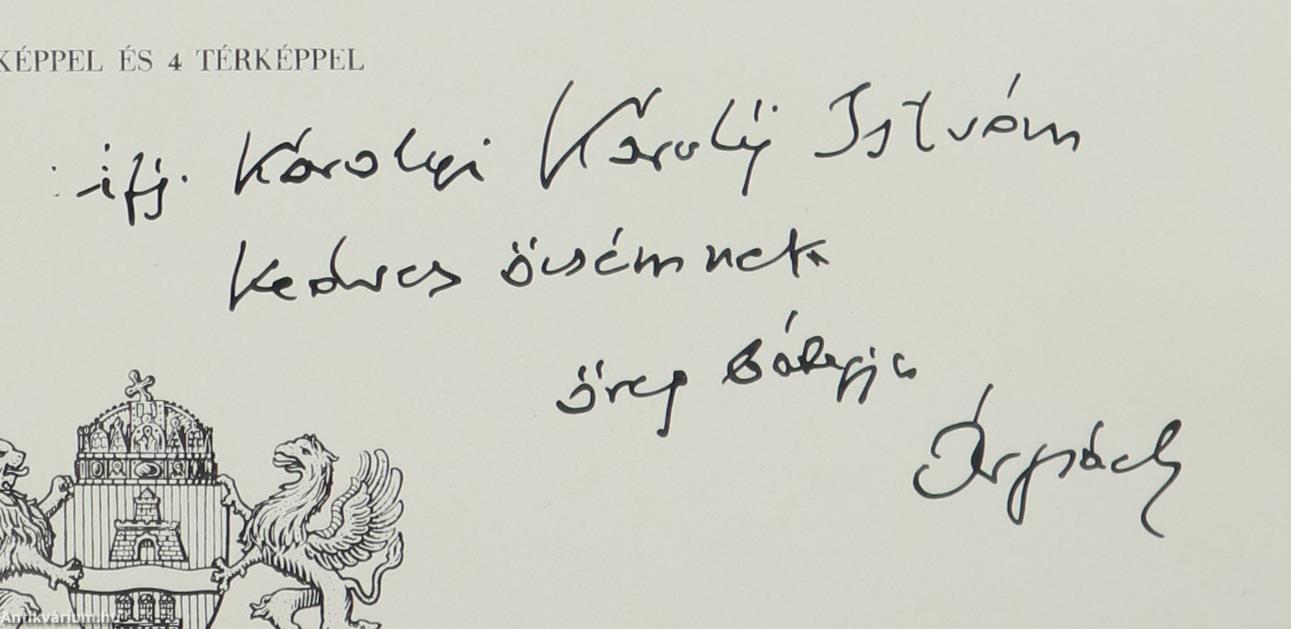 KÉPPEL ÉS 4 TÉRKÉPPEL
ifj. Károlyi Károly István
Kedves öcsémnek
öreg bátyja
Árpád
Antikvárium.hu